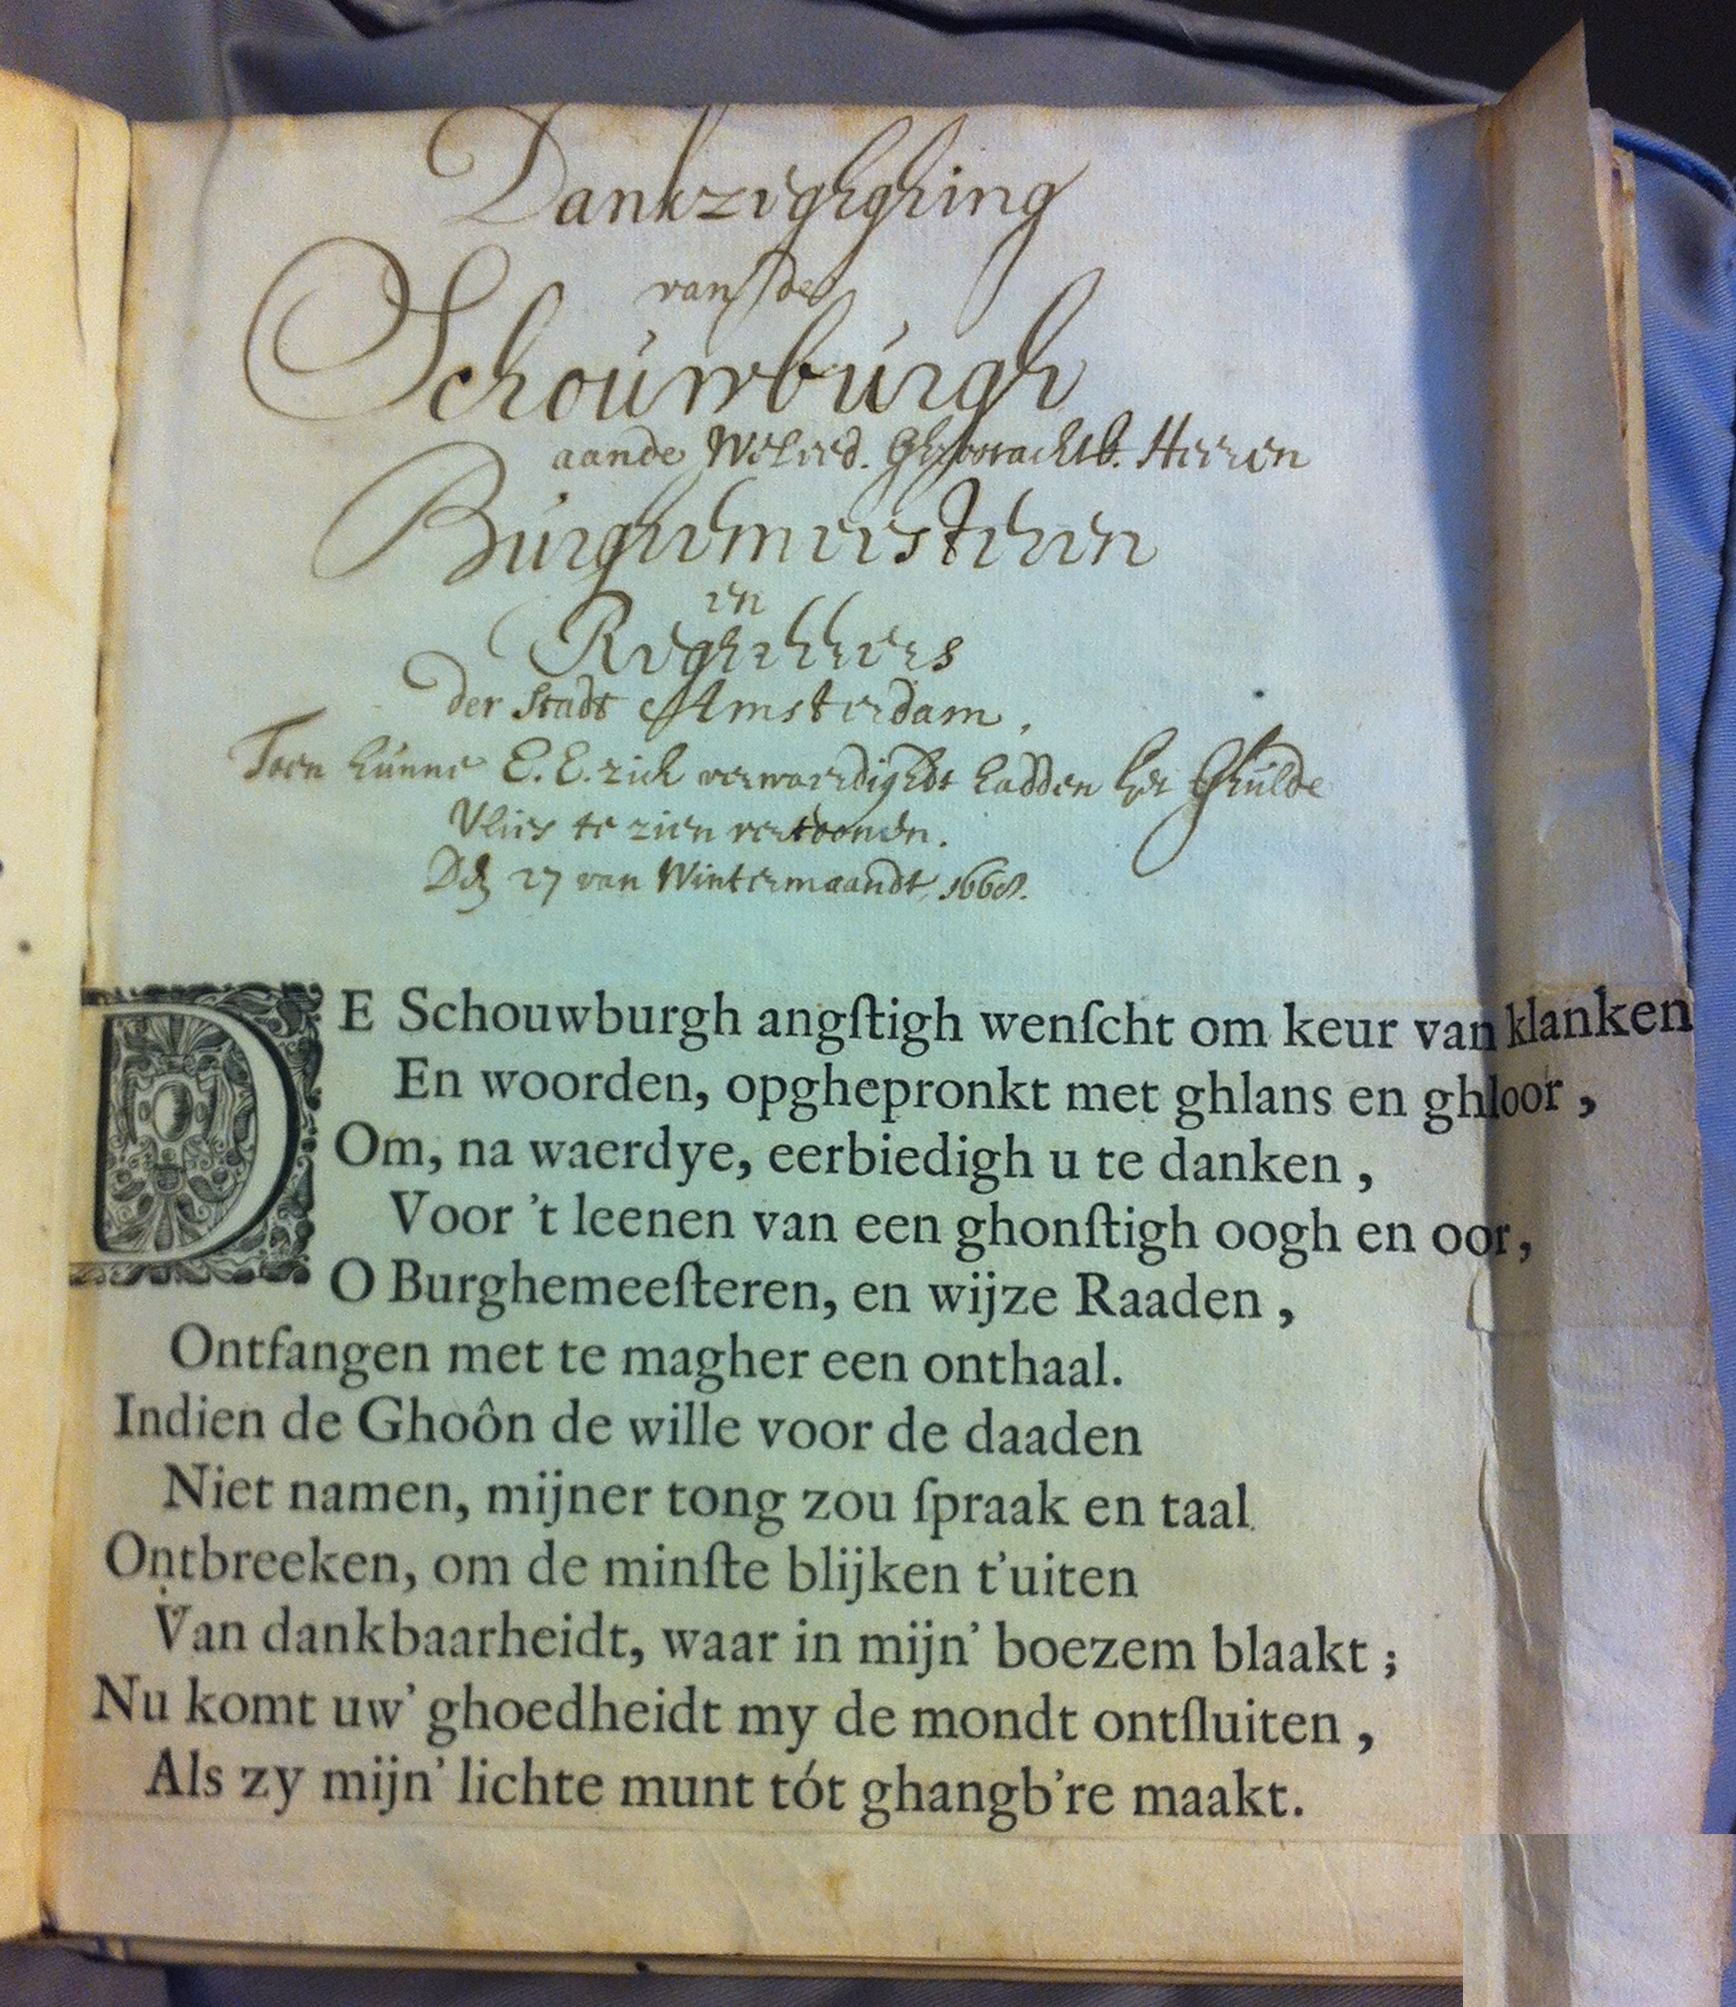 Dankzeghghing
van de
Schouwburgh
aande Weleed. Ghrootachtb. Heeren
Burghemeesteren
en
Regheerders
der Stadt Amsterdam,
Toen hunne E. E. zich verwaerdighdt hadden het Ghulde
Vlies te zien vertoonen.
Den 27 van Wintermaandt, 1668.
DE Schouwburgh angſtigh wenſcht om keur van klanken
En woorden, opghepronkt met ghlans en ghloor,
Om, na waerdye, eerbiedigh u te danken,
Voor 't leenen van een ghonſtigh oogh en oor,
O Burghemeeſteren, en wijze Raaden,
Ontfangen met te magher een onthaal.
Indien de Ghoôn de wille voor de daaden
Niet namen, mijner tong zou ſpraak en taal
Ontbreeken, om de minſte blijken t'uiten
Van dankbaarheidt, waar in mijn' boezem blaakt;
Nu komt uw' ghoedheidt my de mondt ontſluiten,
Als zy mijn' lichte munt tót ghangb're maakt.